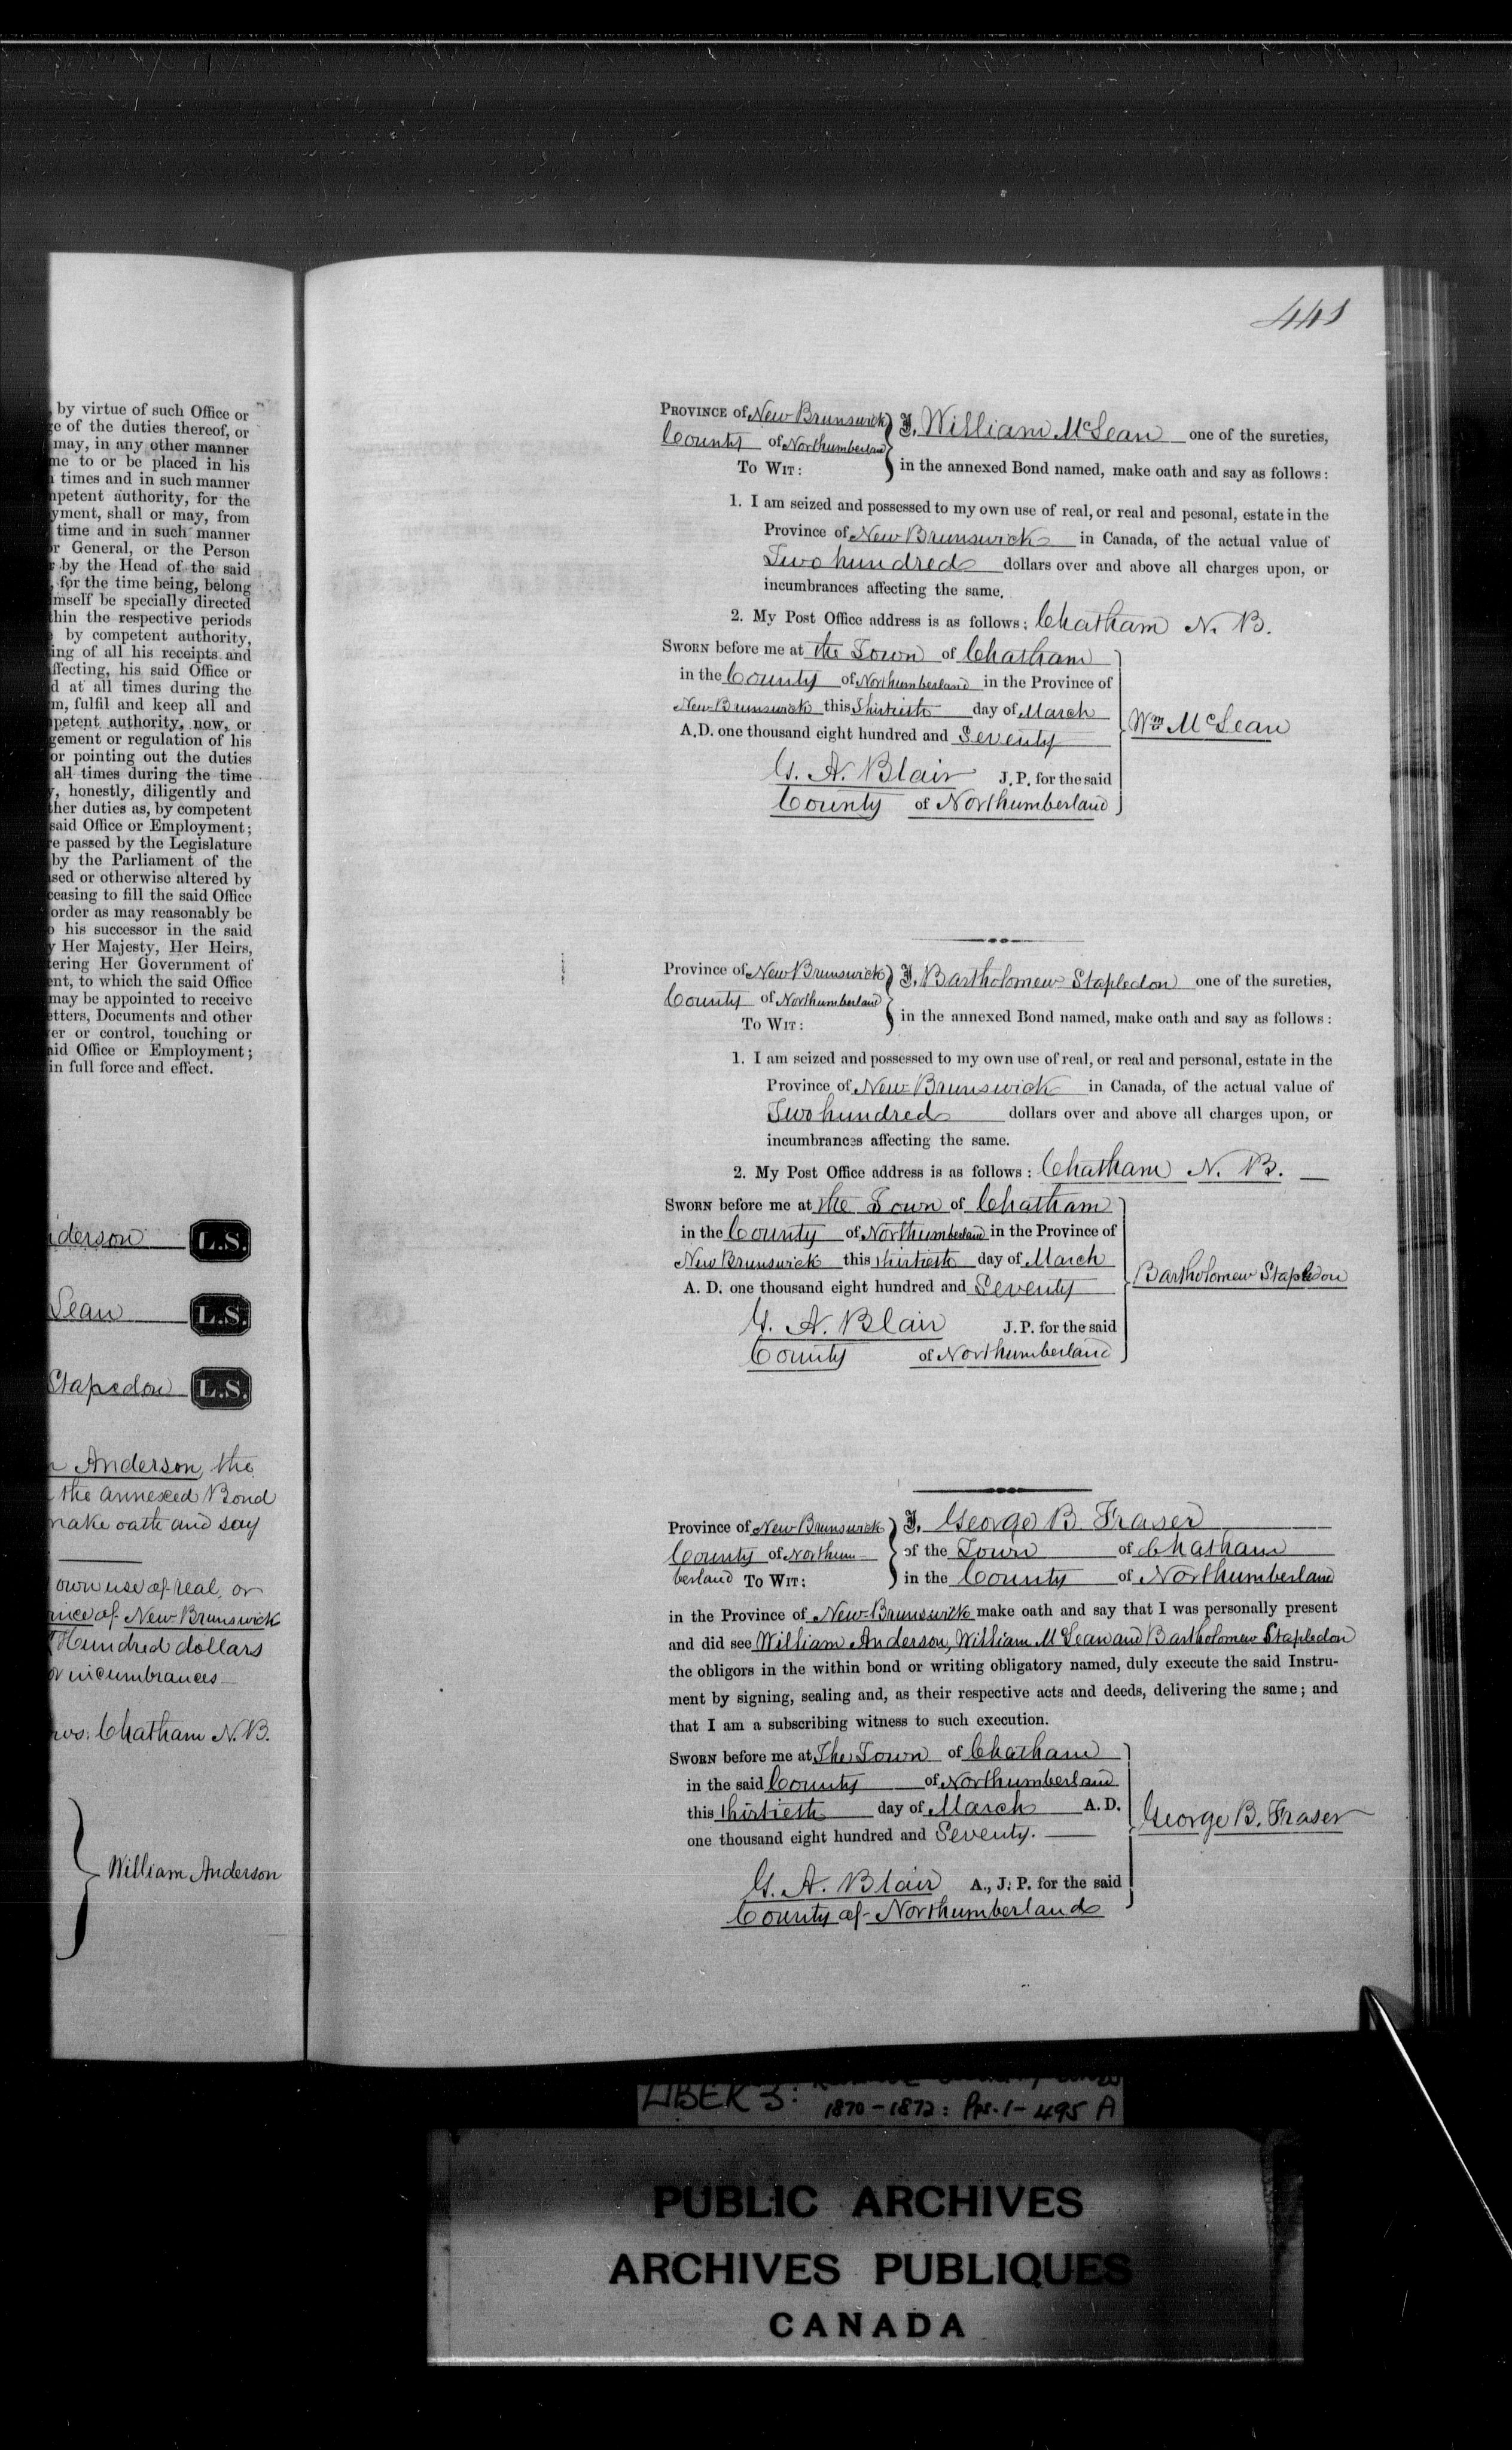 by virtue of such Office or
of the duties thereof, or
may, in any other manner
to or be placed in his
times and in such manner
competent authority, for the
shall or may, from
time and in such manner
General, or the Person
by the Head of the said
for the time being, belong
himself be specially directed
within the respective periods
by competent authority,
of all his receipts and
affecting, his said Office or
at all times during the
fulfil and keep all and
competent authority, now, or
or regulation of his
or pointing out the duties
all times during the time
honestly, diligently and
other duties as, by competent
said Office or Employment;
passed by the Legislature
by the Parliament of the
or otherwise altered by
ceasing to fill the said Office
order as may reasonably be
his successor in the said
Her Majesty, Her Heirs,
Her Government of
to which the said Office
may be appointed to receive
Letters, Documents and other
or control, touching or
said Office or Employment;
in full force and effect.
derson L.S.
Lean L.S.
Stapledon L.S.
Anderson, the
the annexed Bond
make oath and say
own use of real, or
of New-Brunswick
Hundred dollars
or incumbrances
Chatham N.B.
William Anderson
441
PROVINCE of New Brunswick } I, William McLean one of the sureties,
County of Northumberland
TO WIT: in the annexed Bond named, make oath and say as follows:
1. I am seized and possessed to my own use of real, or real and pesonal, estate in the
Province of New Brunswick in Canada, of the actual value of
Two hundred dollars over and above all charges upon, or
incumbrances affecting the same.
2. My Post Office address is as follows: Chatham N. B.
SWORN before me at the Town of Chatham
in the County of Northumberland in the Province of
New-Brunswick this Thirtieth day of March
A.D. one thousand eight hundred and Seventy
Wm McLean
G. A. Blair J. P. for the said
County of Northumberland
Province of New Brunswick } I, Bartholomew Stapledon one of the sureties,
County of Northumberland
TO WIT: in the annexed Bond named, make oath and say as follows:
1. I am seized and possessed to my own use of real, or real and personal, estate in the
Province of New-Brunswick in Canada, of the actual value of
Two hundred dollars over and above all charges upon, or
incumbrances affecting the same.
2. My Post Office address is as follows: Chatham N. B.
SWORN before me at the Town of Chatham
in the County of Northumberland in the Province of
New Brunswick this thirtieth day of March
A. D. one thousand eight hundred and Seventy
Bartholomew Stapledon
G. A. Blair J. P. for the said
County of Northumberland
Province of New-Brunswick } I, George B. Fraser
County of Northum- of the Town of Chatham
berland TO WIT: in the County of Northumberland
in the Province of New-Brunswick make oath and say that I was personally present
and did see William Anderson, William McLean and Bartholomew Stapledon
the obligors in the within bond or writing obligatory named, duly execute the said Instru-
ment by signing, sealing and, as their respective acts and deeds, delivering the same; and
that I am a subscribing witness to such execution.
SWORN before me at The Town of Chatham
in the said County of Northumberland
this thirtieth day of March A. D.
one thousand eight hundred and Seventy.
George B. Fraser
G. A. Blair A., J. P. for the said
County of Northumberland
LIBER 3:
1870-1872: Pps. 1-495 A
PUBLIC ARCHIVES
ARCHIVES PUBLIQUES
CANADA